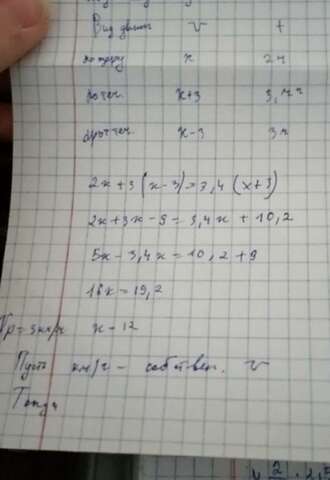 Вид движ v t
по озеру x 2ч
по теч. x+3 3,4ч
пр. теч x-3 3ч
2x+3(x-3)=3,4(x+3)
2x+3x-9=3,4x+10,2
5x-3,4x=10,2+9
16x=19,2
Vр=3км/ч x-12
Пусть км/ч - собствен. v
Тогда